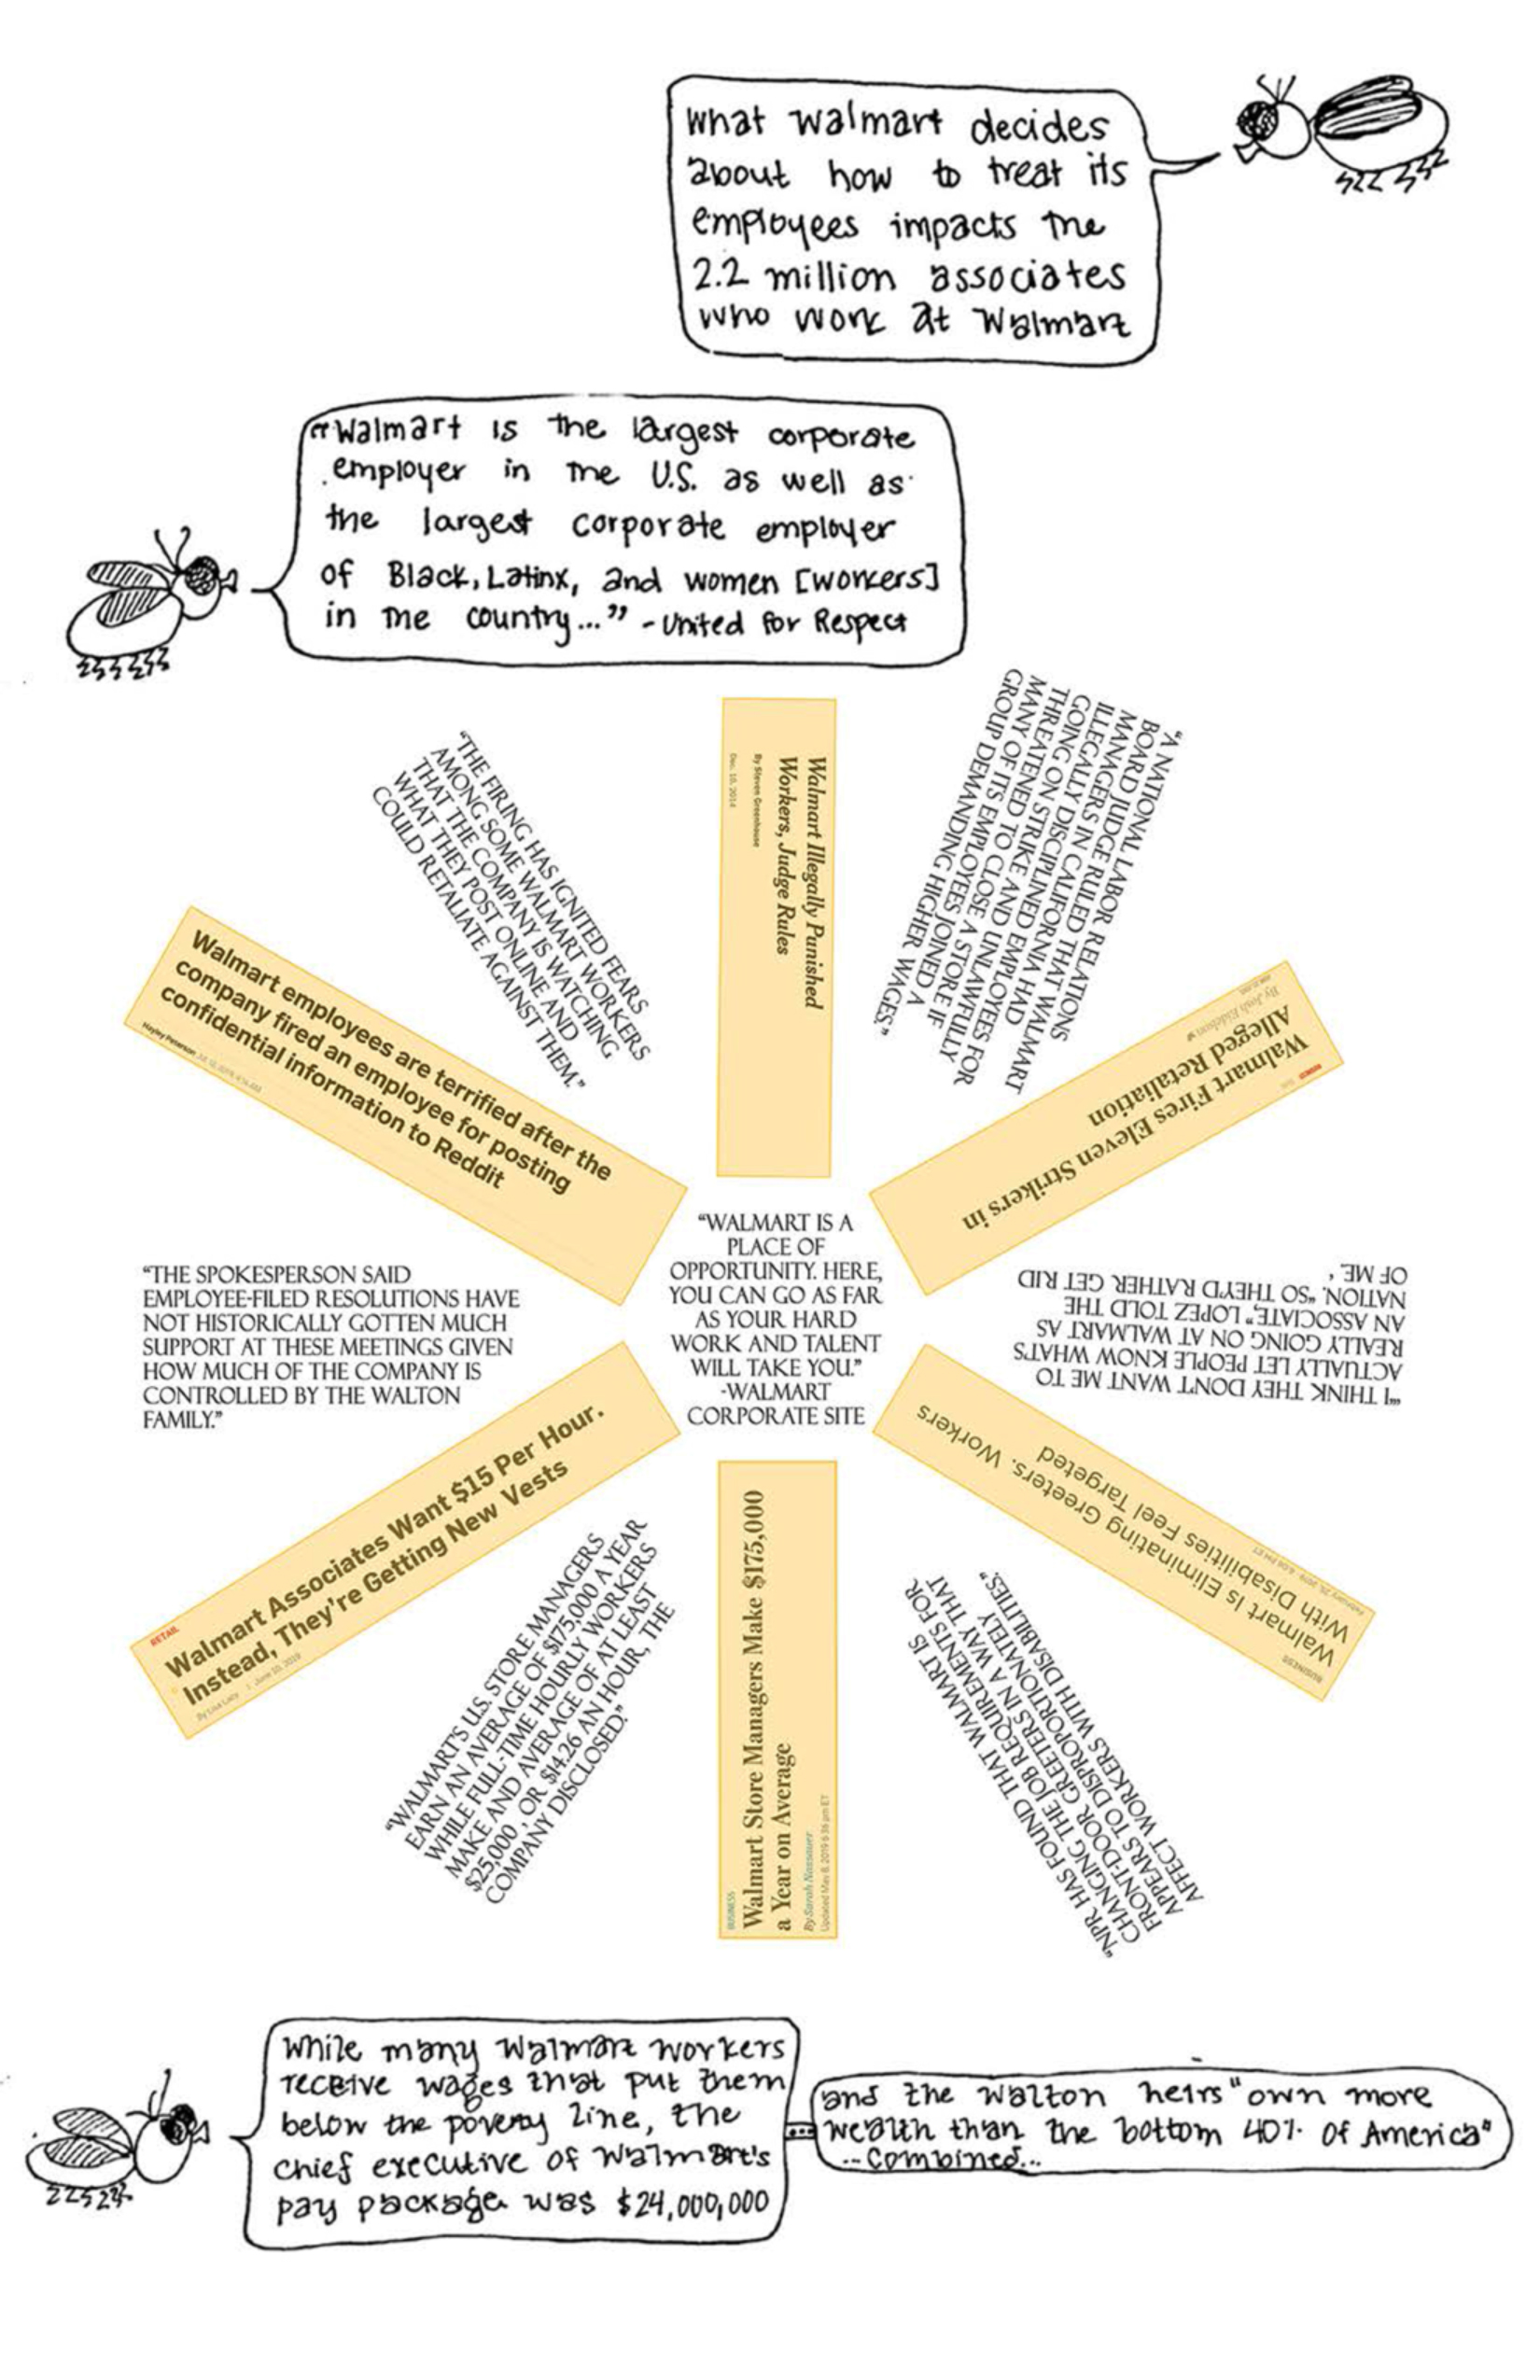 What Walmart decides
about how to treat its
employees impacts the
2.2 million associates
who work at Walmart
"Walmart is the largest corporate
employer in the U.S. as well as
the largest corporate employer
of Black, Latinx, and women [workers]
in the country..." - United for Respect
Walmart Illegally Punished
Workers, Judge Rules
By Steven Greenhouse
Dec. 10, 2014
"A NATIONAL LABOR RELATIONS
BOARD JUDGE RULED THAT WALMART
MANAGERS IN CALIFORNIA HAD
ILLEGALLY DISCIPLINED EMPLOYEES FOR
GOING ON STRIKE AND UNLAWFULLY
THREATENED TO CLOSE A STORE IF
MANY OF ITS EMPLOYEES JOINED A
GROUP DEMANDING HIGHER WAGES."
BUSINESS
Walmart Fires Eleven Strikers in
Alleged Retaliation
By Josh Eidelson
"'I THINK THEY DON'T WANT ME TO
ACTUALLY LET PEOPLE KNOW WHAT'S
REALLY GOING ON AT WALMART AS
AN ASSOCIATE," LOPEZ TOLD THE
NATION. "SO THEY'D RATHER GET RID
OF ME.'
BUSINESS
Walmart Is Eliminating Greeters. Workers
With Disabilities Feel Targeted
February 25, 2019 · 6:08 PM ET
"NPR HAS FOUND THAT WALMART IS
CHANGING THE JOB REQUIREMENTS FOR
FRONT-DOOR GREETERS IN A WAY THAT
APPEARS TO DISPROPORTIONATELY
AFFECT WORKERS WITH DISABILITIES."
BUSINESS
Walmart Store Managers Make $175,000
a Year on Average
By Sarah Nassauer
Updated May 8, 2019 6:36 pm ET
"WALMART'S U.S. STORE MANAGERS
EARN AN AVERAGE OF $175,000 A YEAR
WHILE FULL-TIME HOURLY WORKERS
MAKE AND AVERAGE OF AT LEAST
$25,000 , OR $14.26 AN HOUR, THE
COMPANY DISCLOSED."
RETAIL
Walmart Associates Want $15 Per Hour.
Instead, They're Getting New Vests
By Lisa Lacy | June 10, 2019
"THE SPOKESPERSON SAID
EMPLOYEE-FILED RESOLUTIONS HAVE
NOT HISTORICALLY GOTTEN MUCH
SUPPORT AT THESE MEETINGS GIVEN
HOW MUCH OF THE COMPANY IS
CONTROLLED BY THE WALTON
FAMILY."
Walmart employees are terrified after the
company fired an employee for posting
confidential information to Reddit
Hayley Peterson
"THE FIRING HAS IGNITED FEARS
AMONG SOME WALMART WORKERS
THAT THE COMPANY IS WATCHING
WHAT THEY POST ONLINE AND
COULD RETALIATE AGAINST THEM."
"WALMART IS A
PLACE OF
OPPORTUNITY. HERE,
YOU CAN GO AS FAR
AS YOUR HARD
WORK AND TALENT
WILL TAKE YOU."
-WALMART
CORPORATE SITE
While many Walmart workers
receive wages that put them
below the poverty line, the
chief executive of Walmart's
pay package was $24,000,000
and the Walton heirs "own more
wealth than the bottom 40% of America"
...combined...